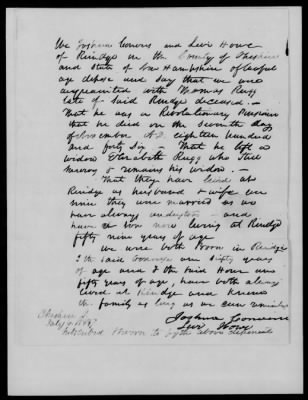 We Joshua Converse and Levi Howe
of Rindge in the County of Cheshire
and State of New Hampshire of lawful
age depose and say that we were
acquainted with Thomas Rugg
late of said Rindge deceased. –
That he was a Revolutionary Pensioner
that he died on the seventh day
of November A.D. eighteen hundred
and forty six – That he left a
widow Elizabeth Rugg who still
survives & remains his widow. –
That they have lived at
Rindge as husband & wife ever
since they were married as we
have always understood – and
have a son now living at Rindge
fifty nine years of age.
we were both born in Rindge
I the said Converse am sixty years
of age and I the said Howe am
fifty years of age, have both always
lived at Rindge and known
the family as long as we can remember
Joshua Converse
Levi Howe
Cheshire S.
Subscribed & sworn to by the above deponents